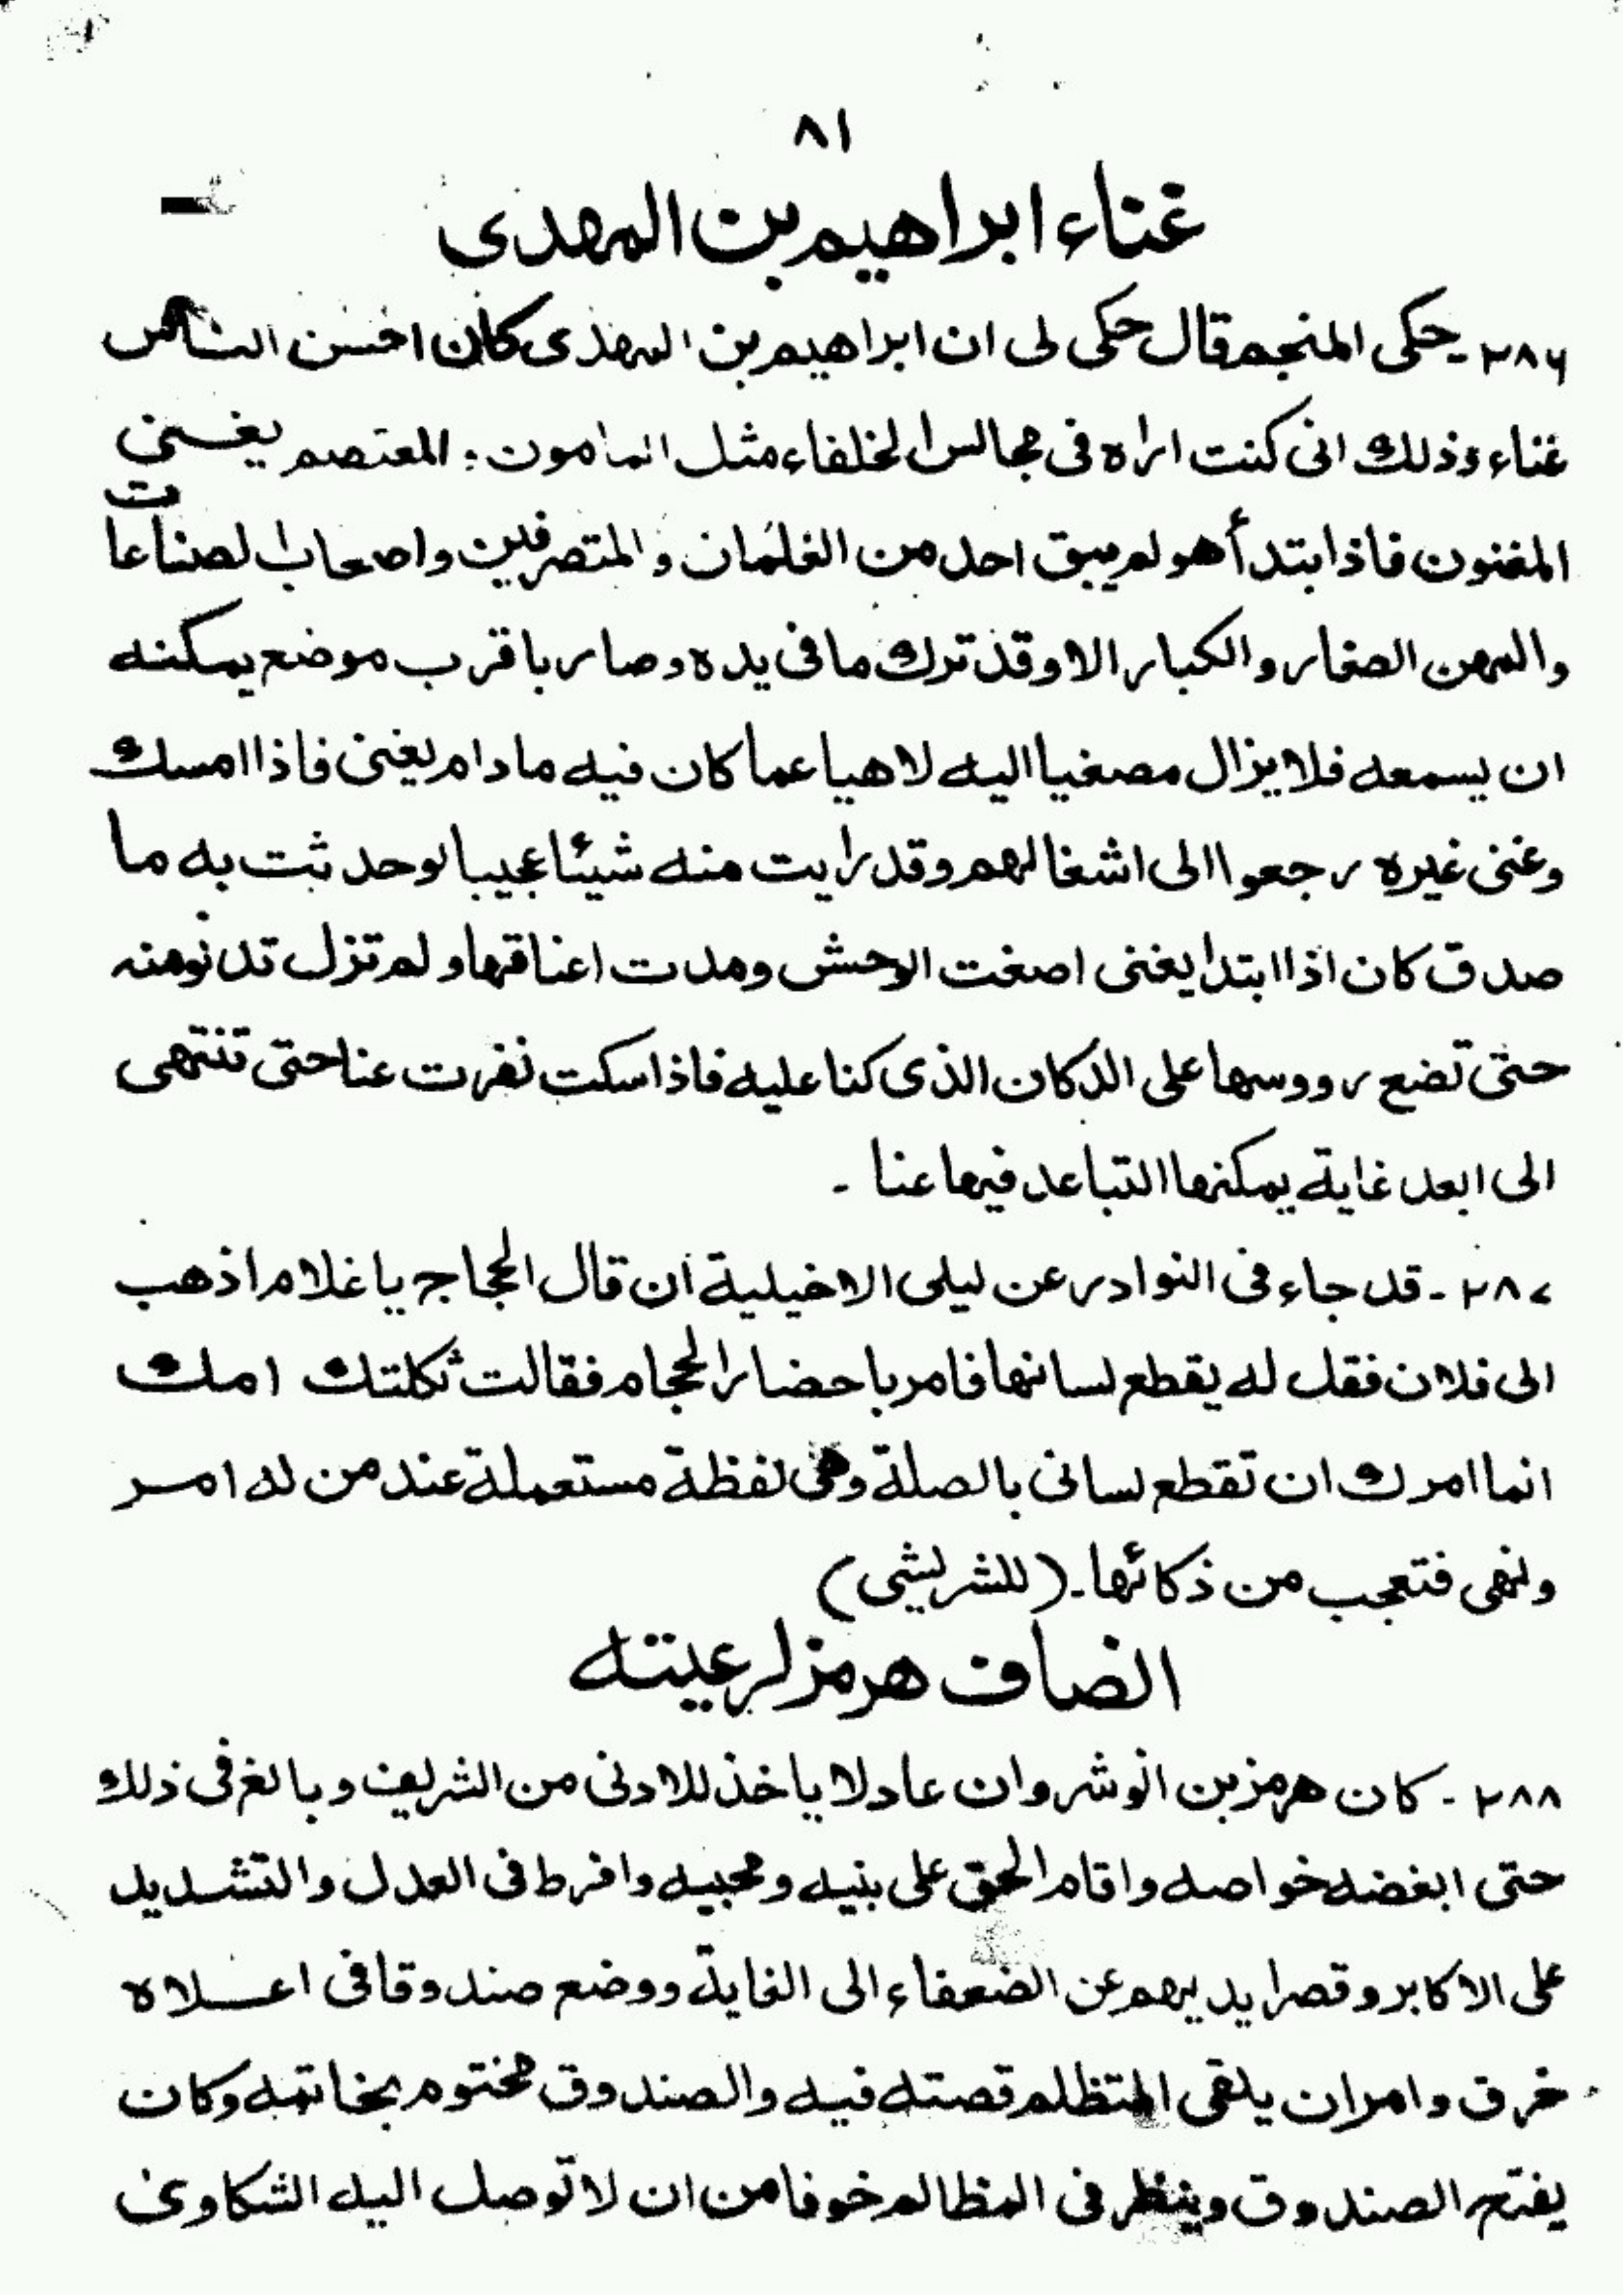 ٨١
غناء ابراهيم بن المهدى
٢٨٦ - حكى المنجم قال حكى لى ان ابراهيم بن المهدى كان احسن الناس
غناء وذلك انى كنت اراه فى مجالس الخلفاء مثل المامون : المعتصم يغنى
المغنون فاذا ابتدأ هو لم يبق احد من الغلمان والمتصرفين واصحاب الصناعات
والمهن الصغار والكبار الا وقد ترك ما فى يده وصار باقرب موضع يمكنه
ان يسمعه فلا يزال مصغيا اليه لاهيا عما كان فيه ما دام يغنى فاذا امسك
وغنى غيره رجعوا الى اشغالهم وقد رايت منه شيئا عجيبا لوحدثت به ما
صدق كان اذا ابتدا يغنى اصغت الوحش ومدت اعناقها ولم تزل تدنو منه
حتى تضع رووسها على الدكان الذى كنا عليه فاذا سكت نفرت عنا حتى تنتهى
الى ابعد غاية يمكنها التباعد فيها عنا -
٢٨٧ - قد جاء فى النوادر عن ليلى الاخيلية ان قال الحجاج يا غلام اذهب
الى فلان فقل له يقطع لسانها فامر باحضار الحجام فقالت ثكلتك امك
انما امرك ان تقطع لسانى بالصلة وهى لفظة مستعملة عند من له امر
ونهى فتعجب من ذكائها - (للشريشى)
انصاف هرمز لرعيته
٢٨٨ - كان هرمز بن انوشروان عادلا ياخذ للادنى من الشريف وبالغ فى ذلك
حتى ابغضه خواصه واقام الحق على بنيه ومحبيه وافرط فى العدل والتشديد
على الاكابر وقصر ايديهم عن الضعفاء الى الغاية ووضع صندوقا فى اعلاه
خرق وامران يلقى المتظلم قصته فيه والصندوق مختوم بخاتمه وكان
يفتح الصندوق وينظر فى المظالم خوفا من ان لا توصل اليه الشكاوى